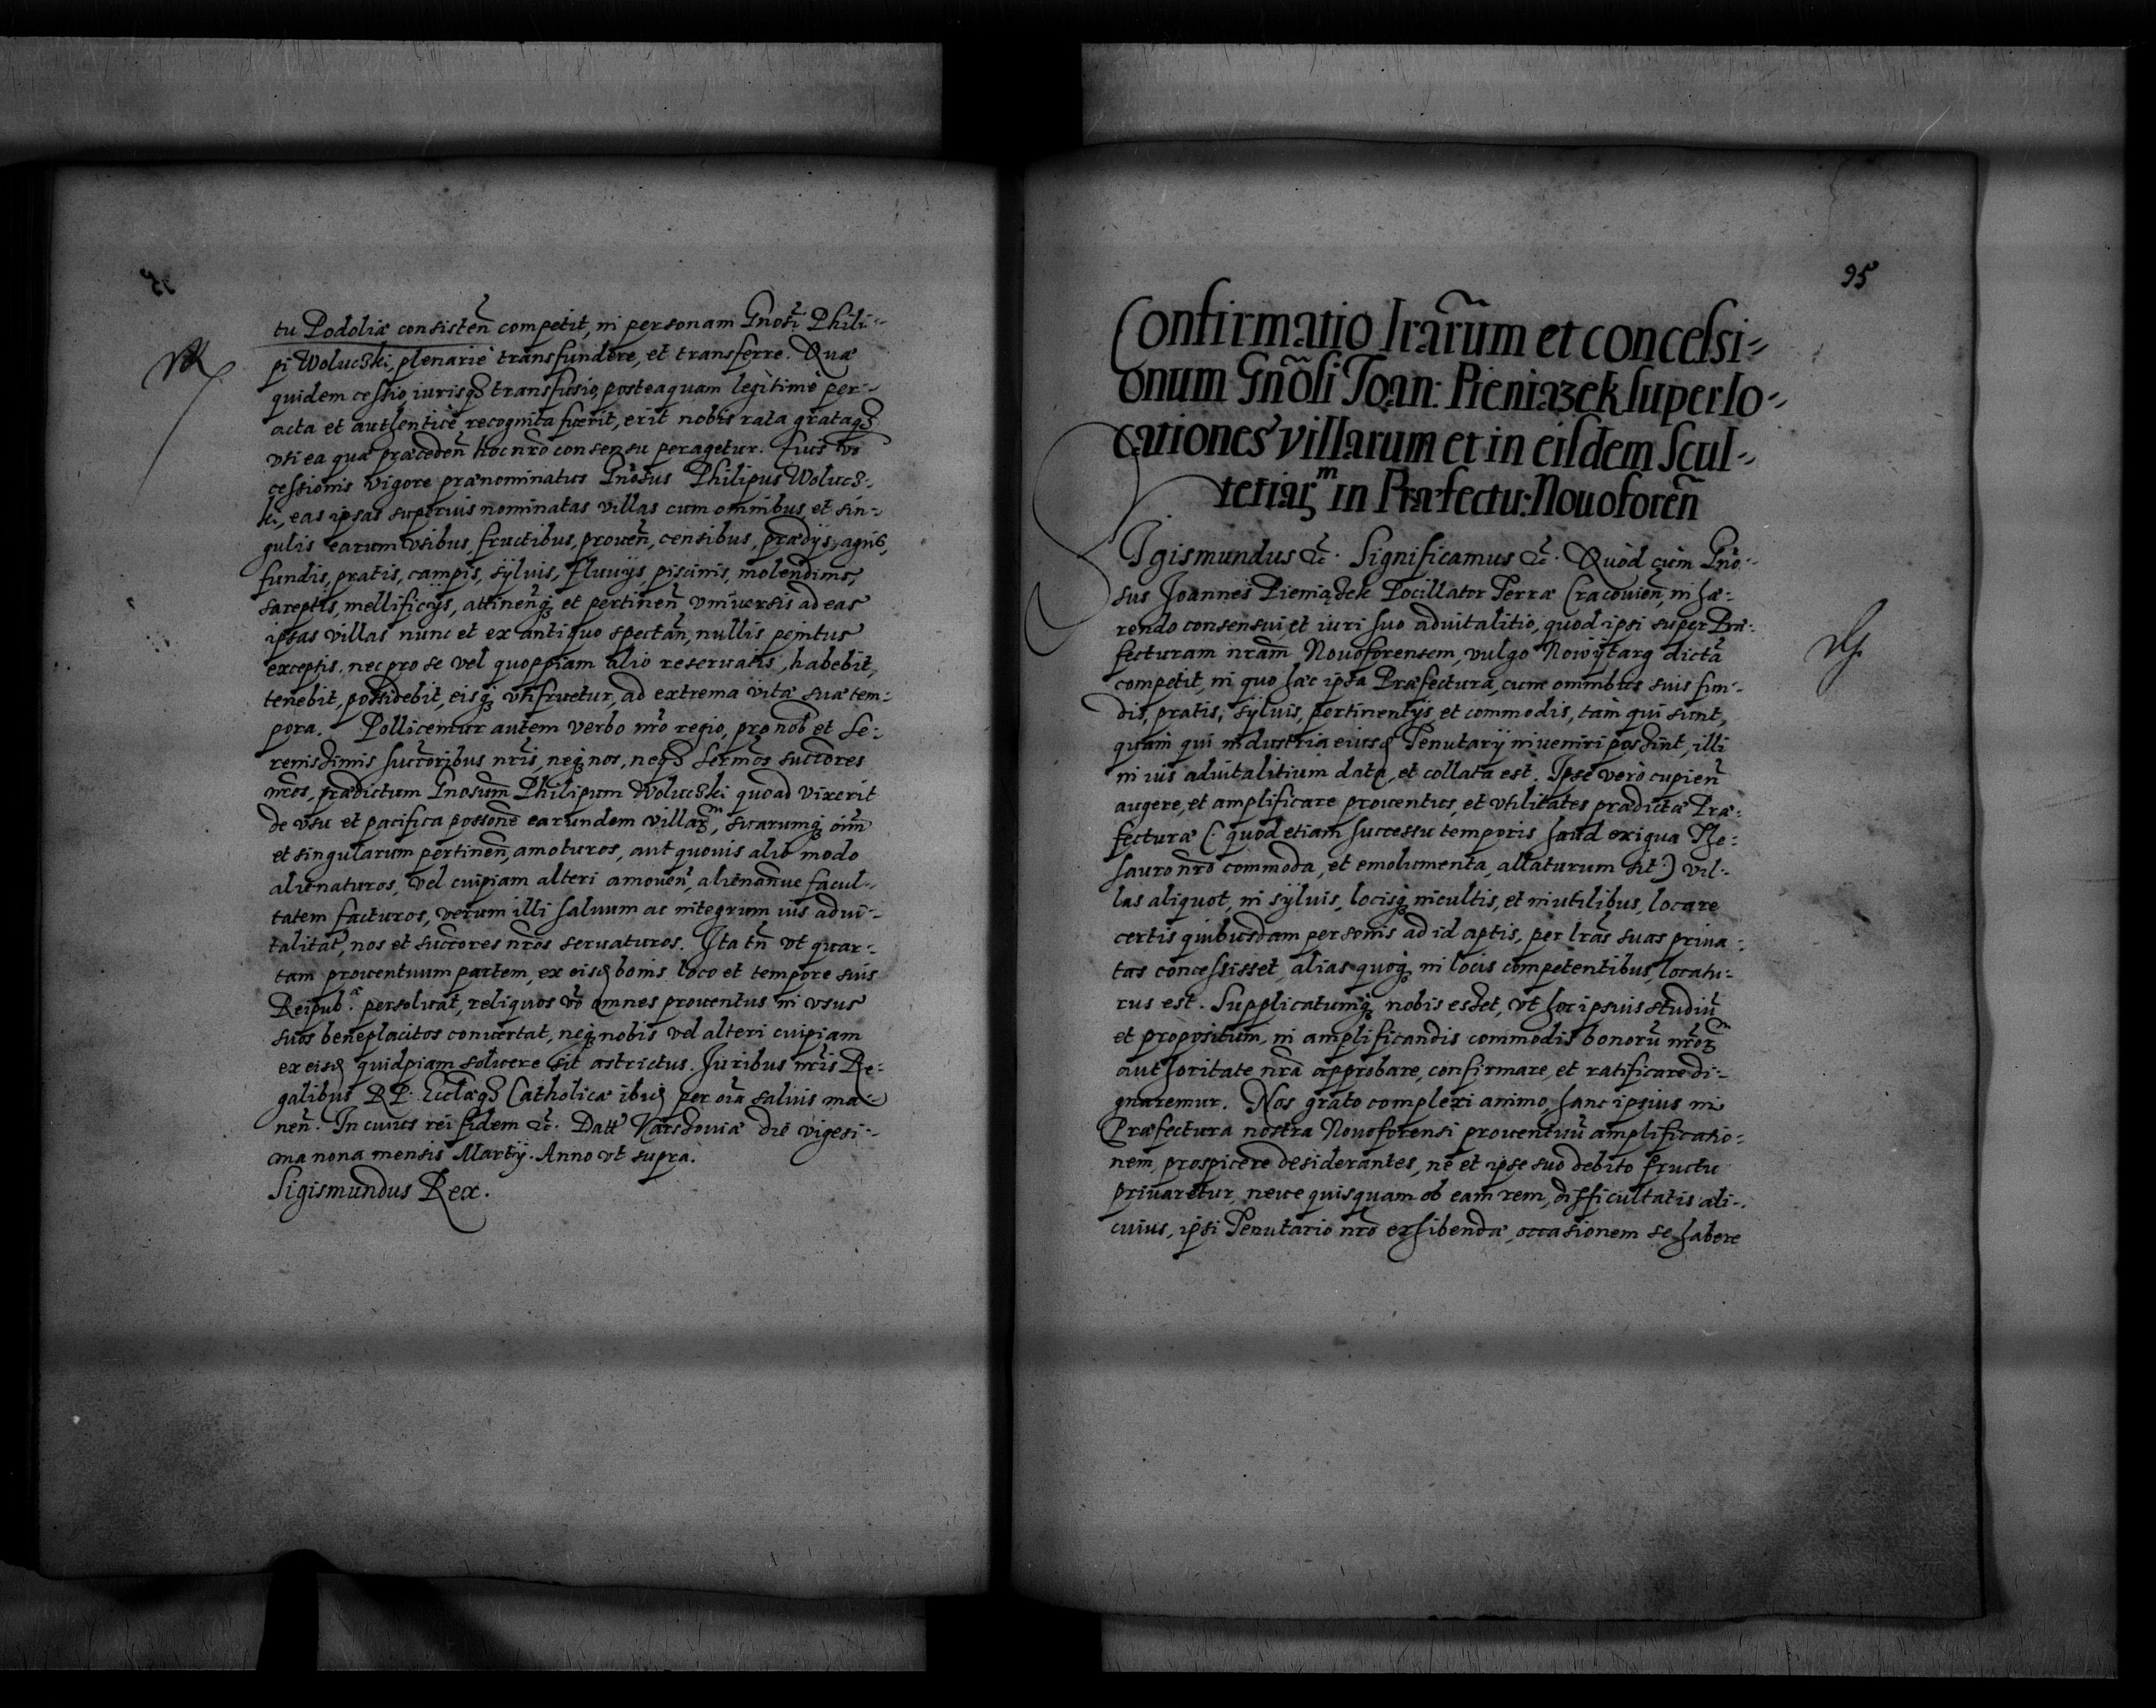 tu Podoliæ consisteñ competit, in personam Gnosi Phili-
pi Woluczki, plenariè transfundere, et transferre. Quæ
quidem cessio, iurisq3 transfusio, posteaquam legitimè per-
acta et authenticè recognita fuerit, erit nobis rata grataq3
uti ea quæ præcedeñ hoc nr̃o consensu peragetur. Cuius vo
cessionis vigore prænominatus Gnosus Philipus Wolucz-
ki, eas ipsas superius nominatas villas cum omnibus et sin-
gulis earum vsibus, fructibus, proueñ, censibus, prædijs, agris,
fundis, pratis, campis, sÿluis, fluuijs, piscinis, molendinis,
sareptis, mellificijs, attineñq3 et pertineñ vniuersis ad eas
ipsas villas nunc et ex antiquo spectañ, nullis penitus
exceptis, nec pro se vel quoppiam alio reseruatis, habebit,
tenebit, possidebit, eisq3 utifruetur, ad extrema vitæ suæ tem-
pora. Pollicemur autem verbo nr̃o regio, pro nob et Se-
renissimis succ̃oribus nr̃is, neq3 nos, neq3 Serm̃os succ̃ores
nr̃os, prædictum Gnosum Philipum Woluczki quoad vixerit
de vsu et pacifica possoñe earundem villarᵐ, suarumq3 oim̃
et singularum pertineñ, amoturos, aut quouis alio modo
alienaturos, vel cuipiam alteri amoueñ, alienañue facul-
tatem facturos, verum illi saluum ac integrum ius adui-
talitat, nos et succ̃ores nr̃os seruaturos. Ita tñ vt quar-
tam prouentuum partem, ex eisd bonis loco et tempore suis
Reipub:ᵃ persoluat, reliquos vo omnes prouentus in vsus
suos beneplacitos conuertat, neq3 nobis vel alteri cuipiam
ex eisd quidpiam soluere sit astrictus. Iuribus nr̃is Re-
galibus RP: Eccl̃æq3 Catholicæ ibid per oia saluis ma-
neñ. In cuius rei fidem &c. Datt Varsouiæ die vigesi-
ma nona mensis Martij. Anno vt supra.
Sigismundus Rex.
95
Confirmatio lrarum et concessi-
onum Gnosi Joan: Pieniazek super lo-
cationes villarum et in eisdem Scul-
tetiarᵐ in Præfectu: Nouoforeñ
Sigismundus &c. Significamus &c. Quòd cùm Gno-
sus Joannes Pieniążek Pocillator Terræ Cracouieñ, in hæ-
rendo consensui, et iuri suo aduitalitio, quod ipsi super Præ-
fecturam nram̃ Nouoforensem, vulgo Nowÿtarg dictã
competit, in quo hæc ipsa Præfectura, cum omnibus suis fun-
dis, pratis, sÿluis, pertinentijs et commodis, tàm qui sunt,
quàm qui industria eiusd Tenutarij inueniri possint, illi
in ius aduitalitium data, et collata est. Ipse verò cupieñ
augere, et amplificare prouentus, et vtilitates prædictæ Præ-
fecturæ (: quod etiam successu temporis haud exigua The-
sauro nr̃o commoda, et emolumenta, allaturum sit:) vil-
las aliquot, in sÿluis, locisq3 incultis, et inutilibus, locare
certis quibusdam personis ad id aptis, per lras̃ suas priua-
tas concessisset, alias quoq3 in locis competentibus, locatu-
rus est. Supplicatumq3 nobis esset, vt hoc ipsius studiũ
et propositum, in amplificandis commodis bonorũ nr̃orᵐ
authoritate nr̃a approbare, confirmare, et ratificare di-
gnaremur. Nos grato complexi animo, hanc ipsius in
Præfectura nostra Nouoforensi prouentuũ amplificatio-
nem, prospicere desiderantes, ne et ipse suo debito fructu
priuaretur, neue quisquam ob eam rem, difficultatis ali-
cuius, ipsi Tenutario nr̃o exhibendæ, occasionem se habere